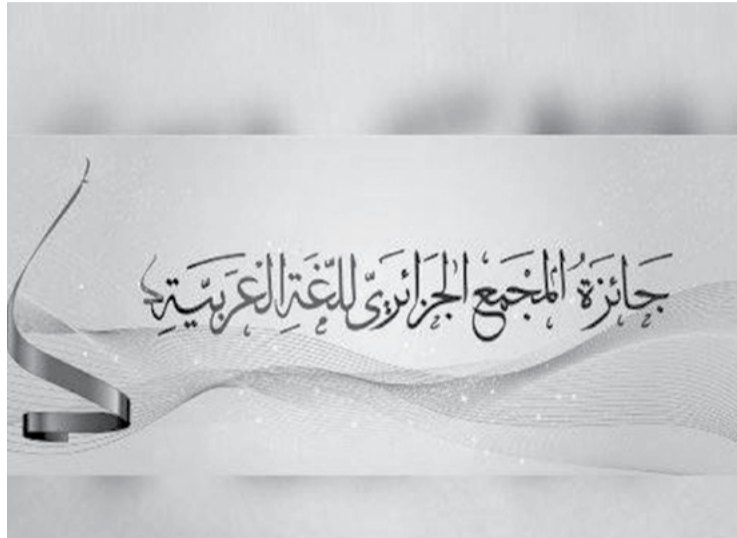 جَائِزَةُ المَجْمَعِ الجَزَائِرِيِّ لِلُّغَةِ العَرَبِيَّةِ